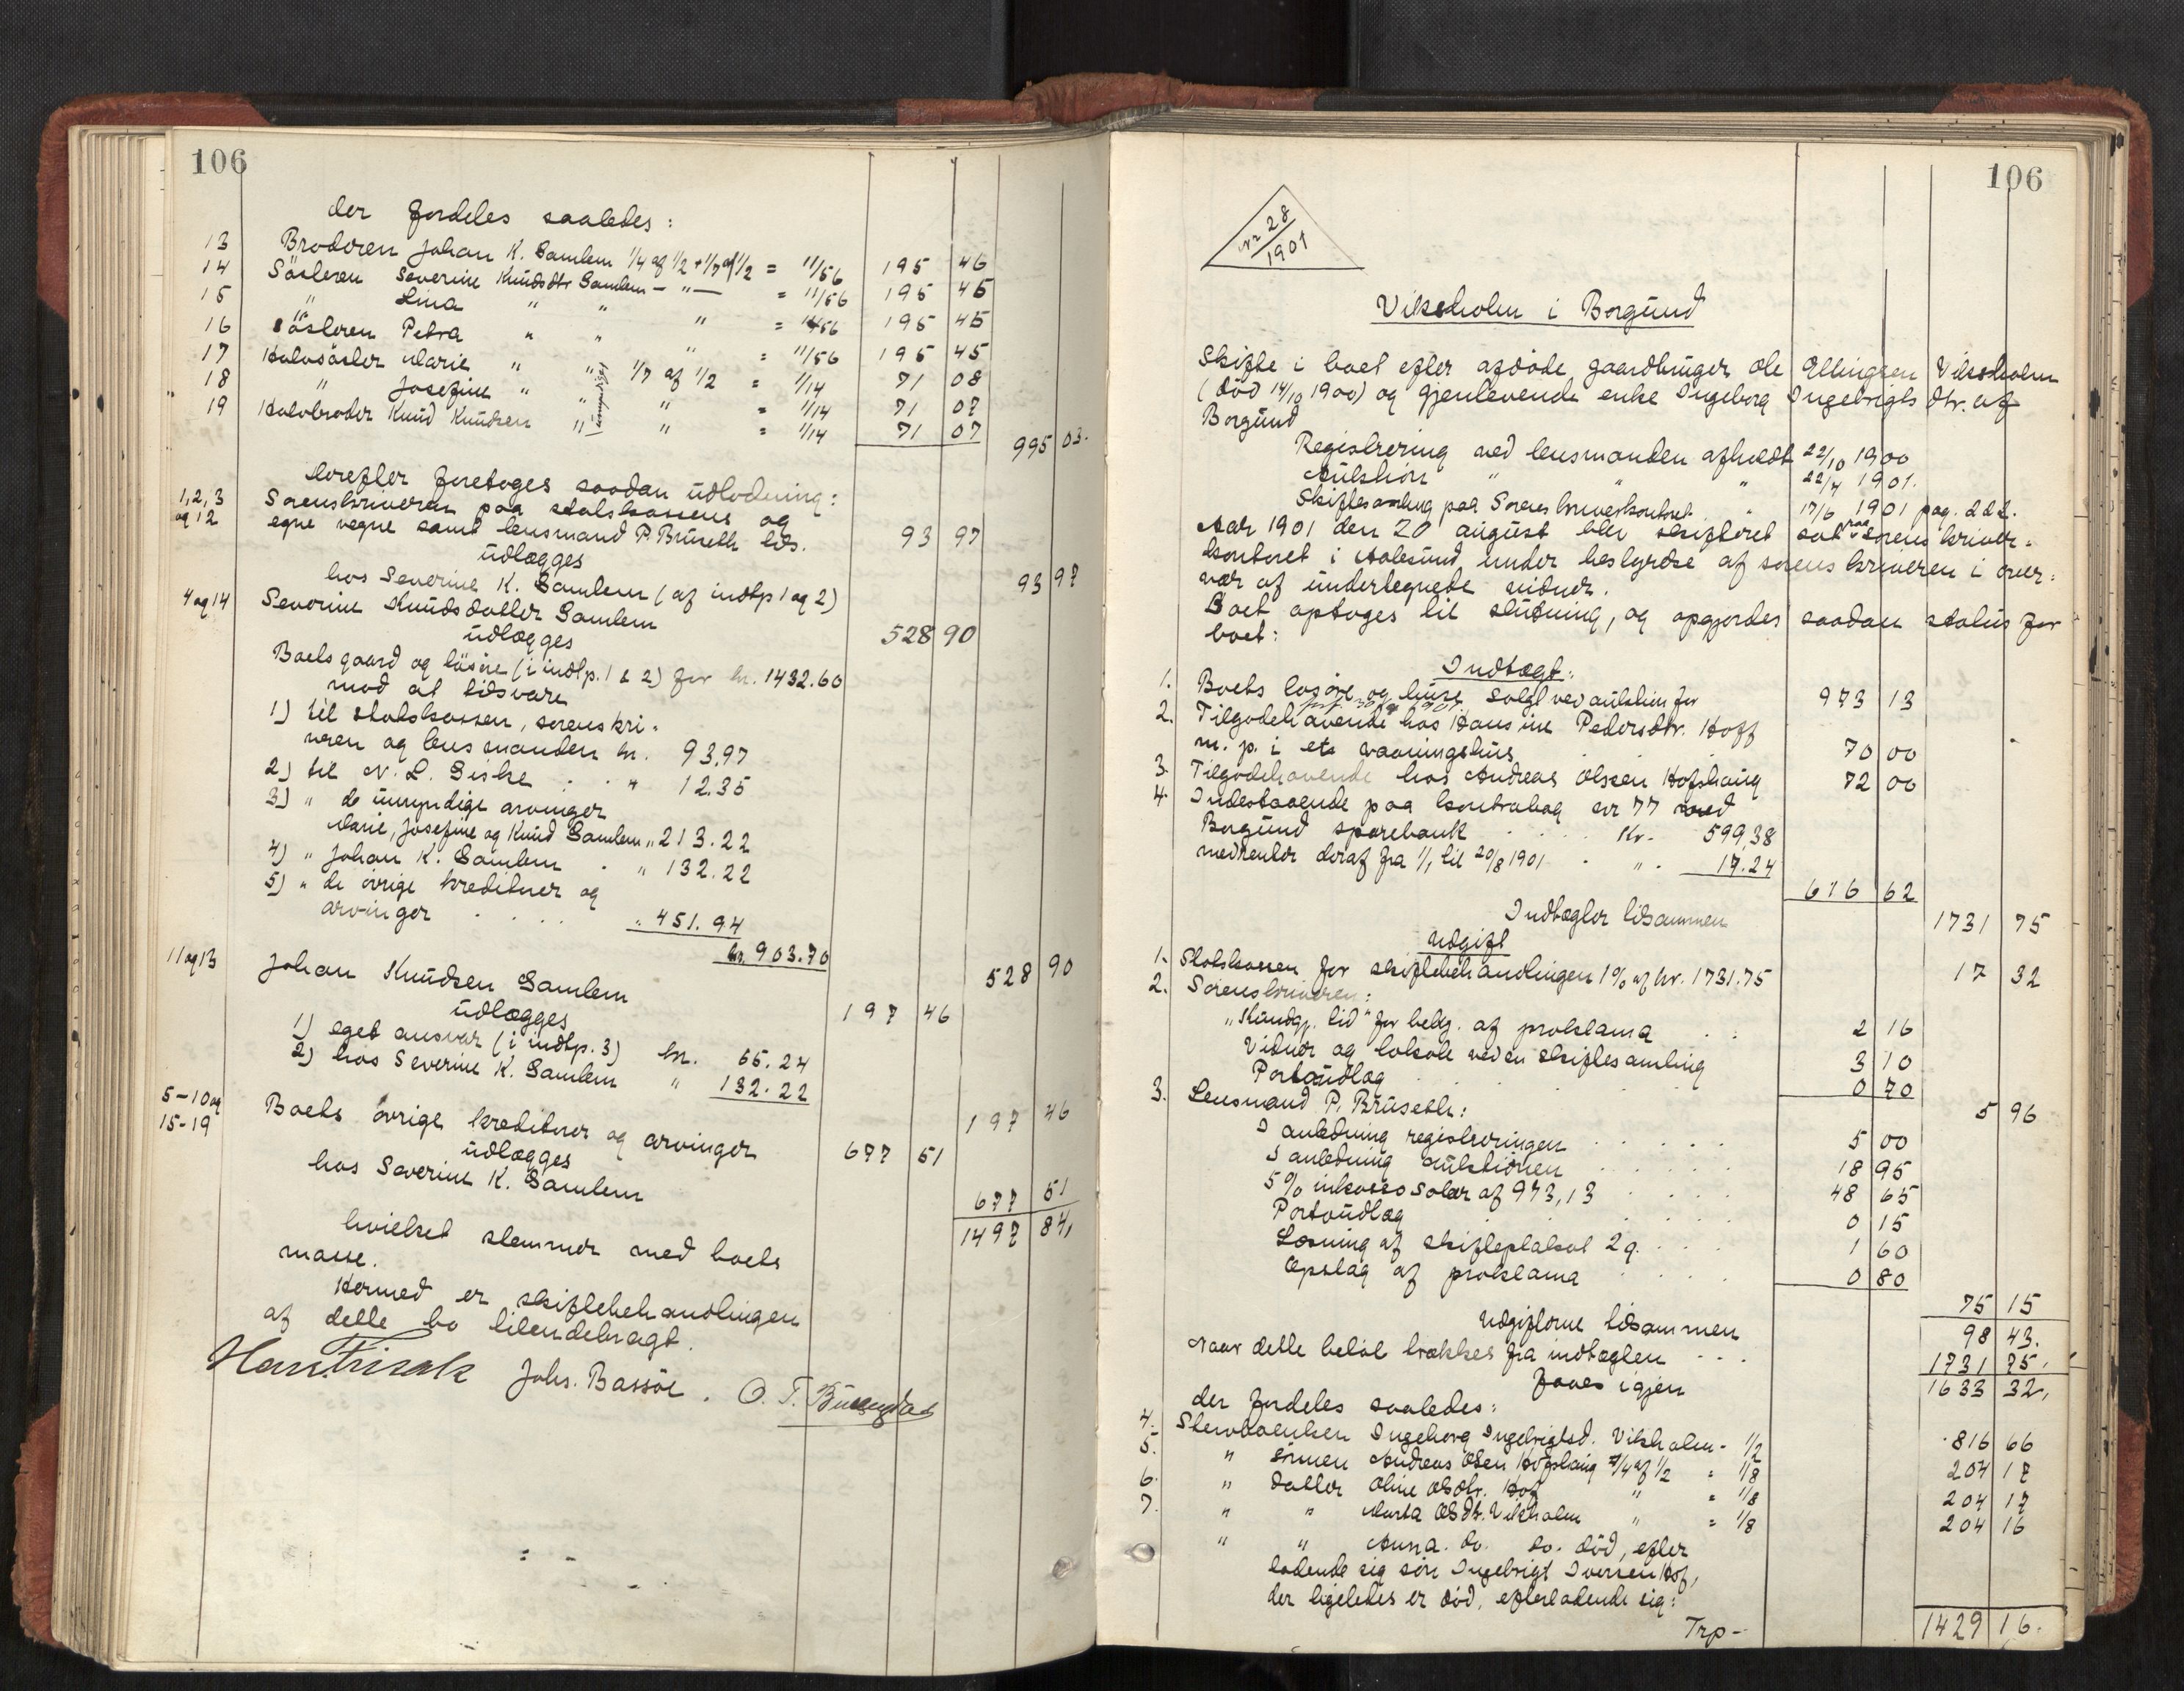 106
der fordeles saaledes:
13 Broderen Johan K. Gamlem 1/4 af 1/2 + 1/7 af 1/2 = 11/56 195 46
14 Sösteren Severine Knudsdtr Gamlem - " - = 11/56 195 45
15 " Lina " " " = 11/56 195 45
16 sösteren Petra " " " = 11/56 195 45
17 Halvsöster Marie " " 1/7 af 1/2 = 1/14 71 08
18 " Josefine " " " = 1/14 71 07
19 Halvbroder Knud Knudsen " " = 1/14 71 07
umyndige
995 03.
Derefter foretoges saadan udlodning:
1, 2, 3 Sorenskriveren paa statskassens og
og 12 egne vegne samt lensmand P. Brüseth tils. 93 97
udlægges
hos Severine K. Gamlem (af indtp 1 og 2) 93 97
4 og 14 Severine Knudsdatter Gamlem 528 90
udlægges
Boets gaard og lösöre (i indtp. 1 & 2) for kr. 1432.60
mod at tilsvare
1) til statskassen, sorenskri-
veren og lensmanden kr. 93,97
2) til N. L. Giske . . " 12.35
3) " de umyndige arvinger
Marie, Josefine og Knud Gamlem " 213.22
4) " Johan K. Gamlem . " 132.22
5) " de övrige kreditorer og
arvinger . . . . " 451.94
kr. 903.70
528 90
11 og 13 Johan Knudsen Gamlem 197 46
udlægges
1) eget ansvar (i indtp. 3) kr. 65.24
2) hos Severine K. Gamlem " 132.22
197 46
5-10 og Boets övrige kreditorer og arvinger 677 51
15-19 udlægges
hos Severine K. Gamlem 677 51
1497 84,
hvilket stemmer med boets
masse.
Hermed er skiftebehandlingen
af dette bo tilendebragt.
Johs. Bassöe. O. T.
106
Nr 28
1901
Viksholm i Borgund
Skifte i boet efter afdöde gaardbruger Ole Ellingsen Viksholm
(död 14/10 1900) og gjenlevende enke Ingeborg Ingebrigtsdtr. af
Borgund
Registrering ved lensmanden afholdt 22/10 1900
Auktion " " " 22/4 1901.
Skiftesamling paa Sorenskriverkontoret " 17/6 1901 pag. 222.
Aar 1901 den 20 august blev skifteret sat paa sorenskriver-
kontoret i Aalesund under bestyrelse af sorenskriveren i over-
vær af undertegnede vidner.
Boet optoges til slutning, og opgjordes saadan status for
boet:
Indtægt:
1. Boets lösöre og huse solgt ved auktion for 973 13
2. Tilgodehavende hos Hansine Pedersdtr. Hoff
m. p. i et vaaningshus 70 00
3. Tilgodehavende hos Andreas Olsen Hofshaug 72 00
4. Indestaaende paa kontrabog nr 77 med
Borgund sparebank . . . Kr. 599,38
med renter deraf fra 1/1 til 20/8 1901 . " . 17.24
616 62
Indtægter tilsammen 1731 75
Udgift
1. Statskassen for skiftebehandlingen 1% af kr. 1731.75 17 32
2. Sorenskriveren:
"Kundgj. tid" for bekg. af proklama . . 2 16
Vidner og lokale ved en skiftesamling 3 10
Portoudlæg . . . . 0 70
5 96
3. Lensmand P. Brüseth:
I anledning registreringen . . . . . 5 00
I anledning auktionen . . . . . 18 95
5% inkassosalær af 973,13 . . . . 48 65
Portoudlæg . . . . . 0 15
Læsning af skifteplakat 2 g. . . . 1 60
Opslag af proklama . . . . 0 80
75 15
Udgifterne tilsammen 98 43.
Naar dette belöb trækkes fra indtægten . . . 1731 75.
faaes igjen 1633 32,
der fordeles saaledes:
4. Stervboenken Ingeborg Ingebrigtsd. Viksholm - 1/2 816 66
5. " sönnen Andreas Olsen Hofshaug 1/4 af 1/2 = 1/8 204 17
6. " datter Oline Olsdtr. Hof " = 1/8 204 17
7. " " Marta Olsdt. Viksholm " = 1/8 204 16
" " Anna. do. do. död, efter
ladende sig sön Ingebrigt Iversen Hof,
der ligeledes er död, efterladende sig:
Trp - 1429 16.